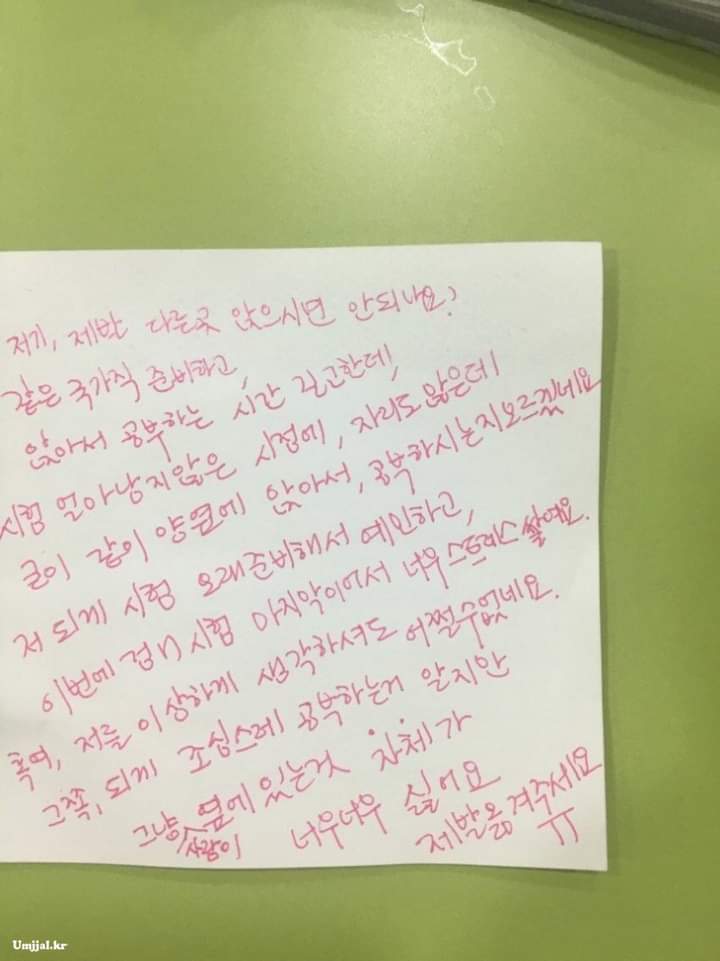 저기, 제발 다른곳 앉으시면 안되나요?
같은 국가직 준비하고,
앉아서 공부하는 시간 길고한데,
시험 얼마남지않은 시점에, 자리도 많은데
굳이 같이 양옆에 앉아서, 공부하시는지모르겠네요
저 되게 시험 오래준비해서 예민하고,
이번에 시험 마지막이어서 너무 스트레스 쌓여요.
혹여, 저를 이상하게 생각하셔도 어쩔수없네요.
그쪽, 되게 조심스레 공부하는거 알지만
그냥 사람이 옆에있는것 자체가
너무너무 싫어요
제발옮겨주세요
ㅠ
Umjjal.kr